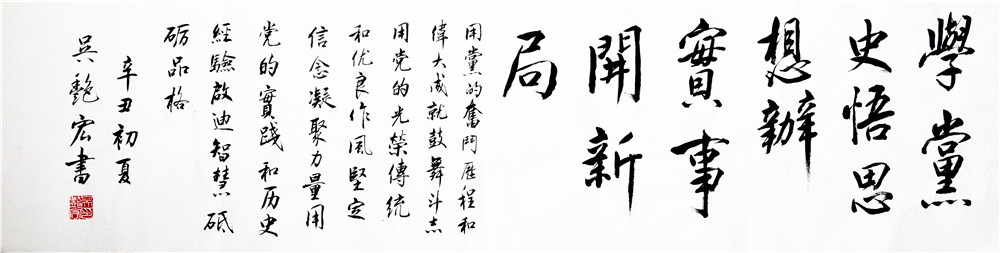 學黨
史悟思
想辦
實事
開新
局
用黨的奮鬥歷程和
偉大成就鼓舞斗志
用党的光榮傳統
和优良作風堅定
信念凝聚力量用
党的實踐和历史
經驗啟迪智慧砥
砺品格
辛丑初夏
吴艷宏書